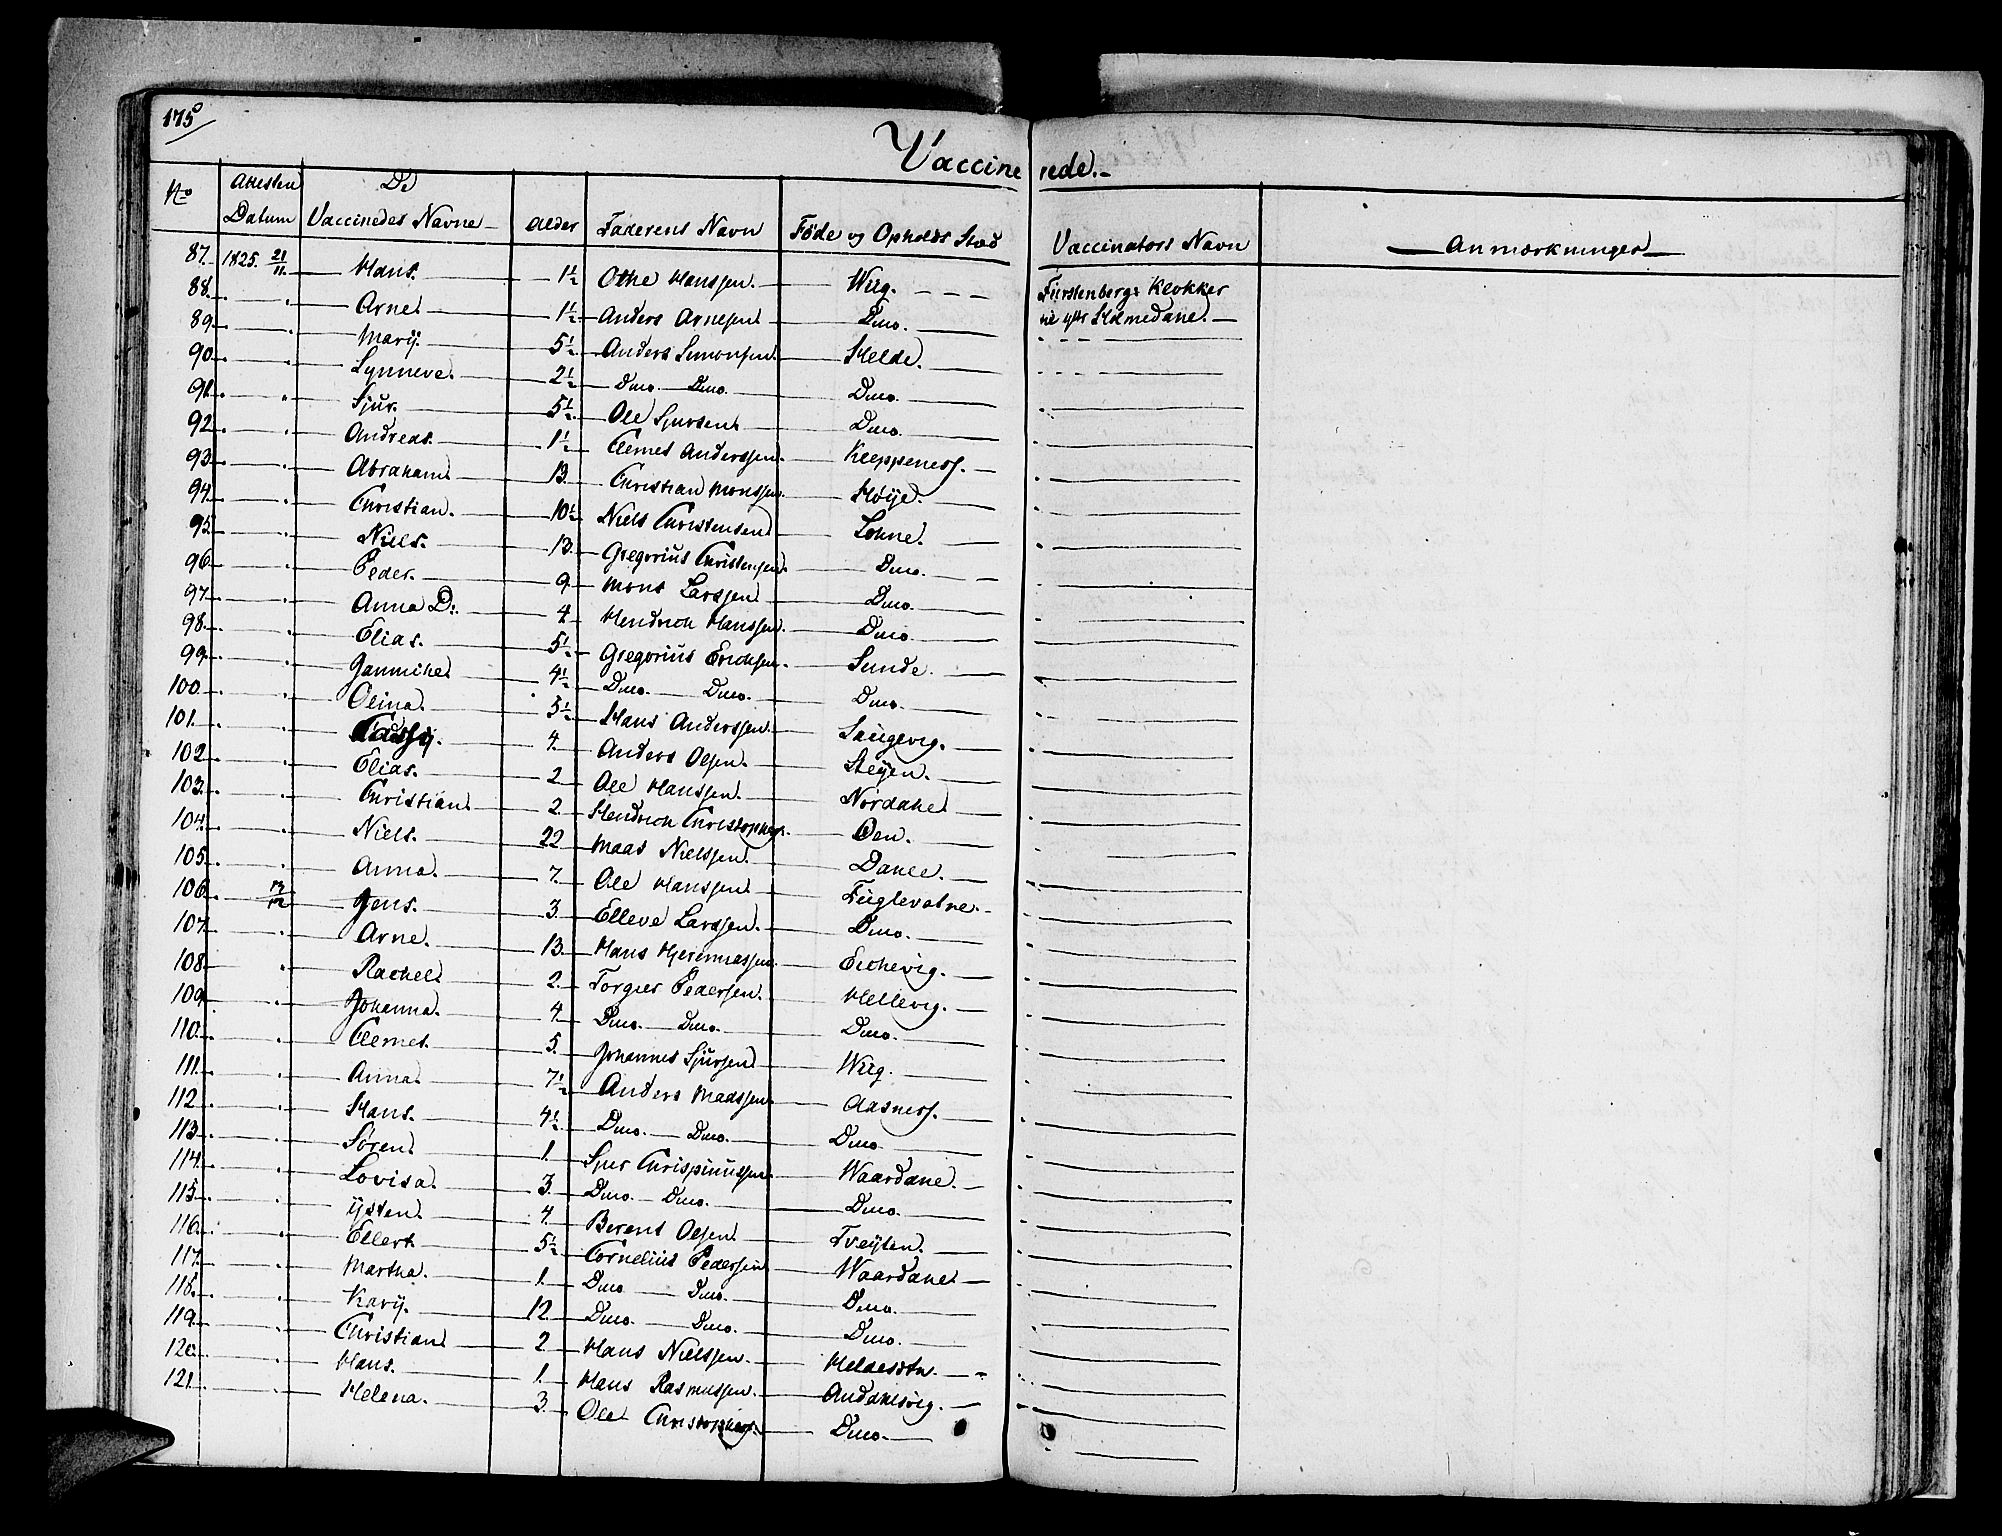 175
Vaccinerede.
No | Attesten Datum | De Vaccinedes Navne | Alder | Faderens Navn | Föde og Opholds Stæd | Vaccinators Navn | Anmærkninger
87. 1825. 21/11 Hans. 1½ Othe Hanssen. Wiig. Fürstenberg: Klokker
88. Arne 1½ Anders Arnesen Dmo. til ytr Holmedane.
89. Mary. 5½ Anders Simonsen. Helde.
90. Synneve. 2½ Dmo. Dmo. Dmo.
91. Sjur. 5½ Ole Sjursen Dmo.
92. Andreas. 1½ Clemet Anderssen. Kleppenes.
93. Abraham 13. Christian Monssen. Høije.
94. Christian. 10½ Niels Christensen Lohne.
95. Niels. 13. Gregorius Christensen. Dmo.
96. Peder. 9 Mons Larssen Dmo.
97. Anna D: 4. Hendrich Hanssen. Dmo.
98. Elias. 5½ Gregorius Erichsen. Sunde.
99. Jannicke 4½ Dmo. Dmo. Dmo.
100. Olina. 5½ Hans Anderssen. Saugevig.
101. 4. Anders Olsen. Steyen.
102. Elias. 2 Ole Hanssen. Nordahe
103. Christian 2 Hendrich Christophers. Øen.
104. Niels. 22 Maas Nielssen. Dahle.
105. Anna. 7. Ole Hanssen Fuglevatne.
106. Jens. 3. Elleve Larssen. Dmo.
107. Arne. 13. Hans Hjeremiassen. Eichevig.
108. Rachel 2. Torgier Pedersen. Hellevig.
109. Johanna. 4. Dmo. Dmo. Dmo.
110. Clemet. 5. Johannes Sjursen Wiig.
111. Anna 7½ Anders Madssen. Aasnes.
112. Hans. 4½ Dmo. Dmo. Dmo.
113. Søren 1. Sjur Chrispinussen. Waardane.
114. Lovisa. 3. Dmo. Dmo. Dmo.
115. ijsten. 4. Berent Olsen Tveyten.
116. Ellert 5½ Cornelius Pedersen Waardane
117. Martha. 1. Dmo. Dmo. Dmo.
118. Kary. 12 Dmo. Dmo. Dmo.
119. Christian 2 Hans Nielssen. Heldesstr.
120. Hans. 1. Hans Rasmussen. Andahlsvig.
121. Helena. 3. Ole Christophers. Dmo.